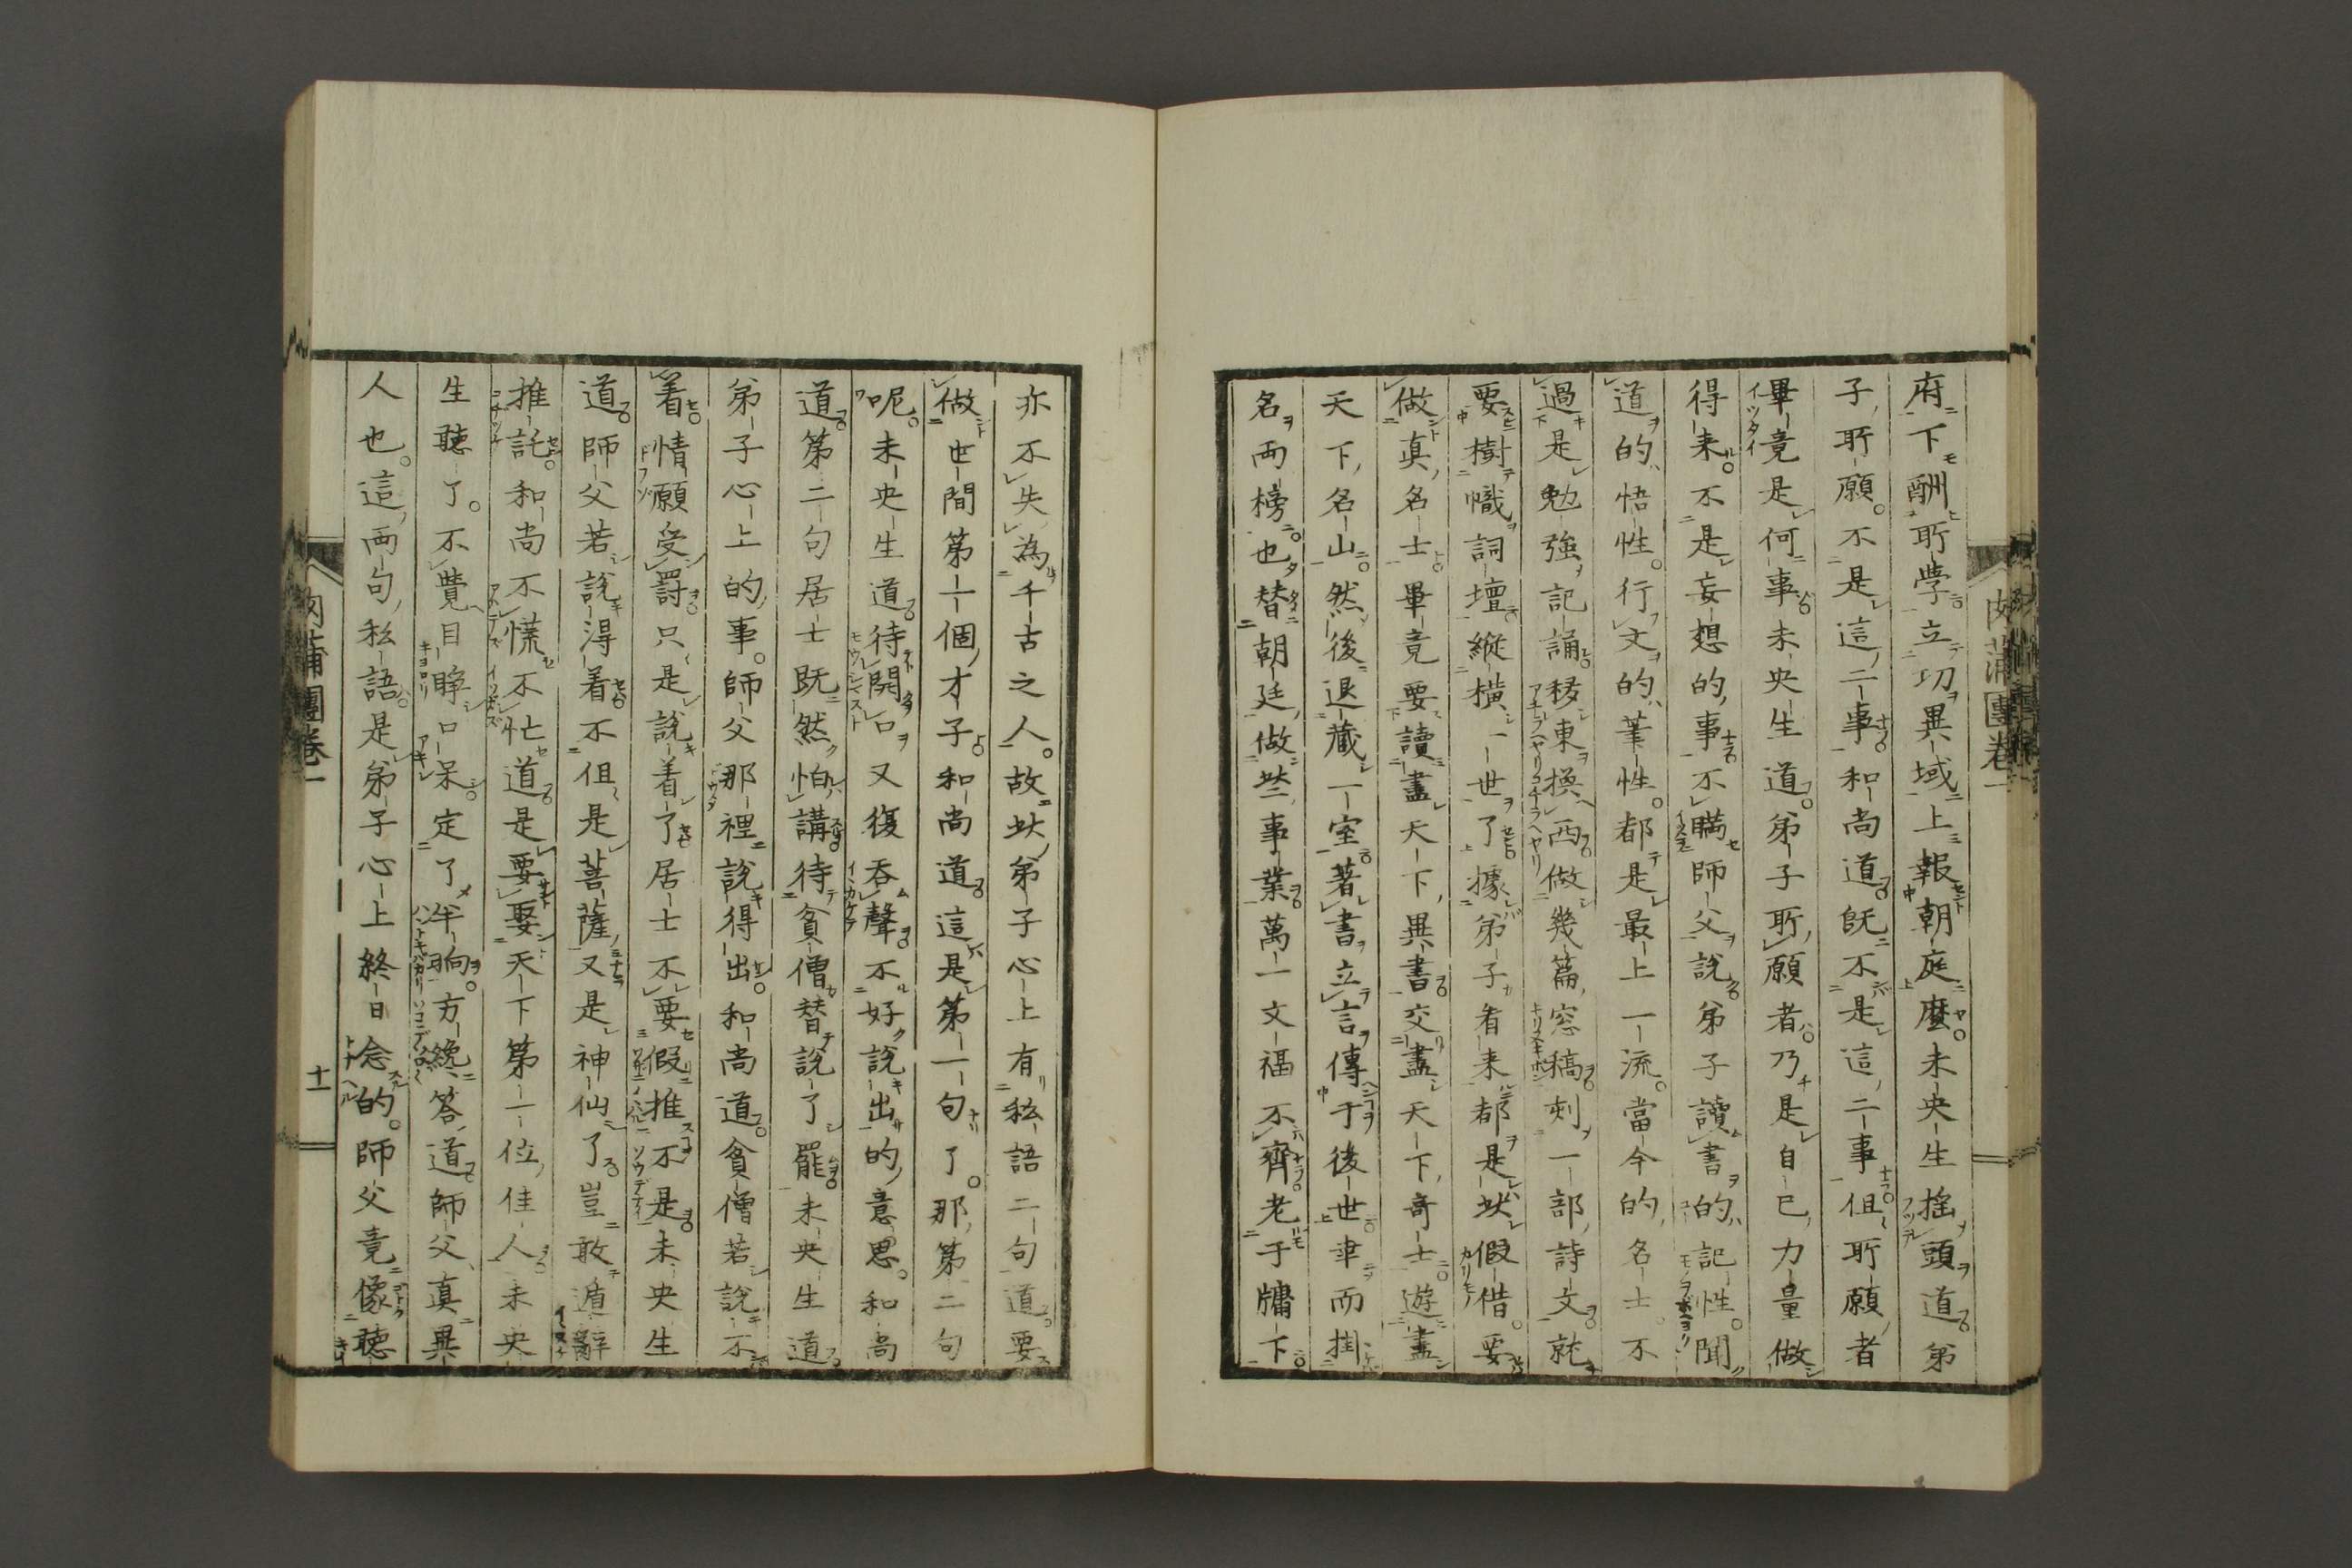 肉蒲團卷一
府下酬所學立切異域上報朝庭麼未央生搖頭道弟
子所願不是這二事和尚道既不是這二事但所願者
畢竟是何事未央生道弟子所願者乃是自己力量做
得来不是妄想的事不瞞師父說弟子讀書的記性聞
道的悟性行文的筆性都是最上一流當今的名士不
過是勉強記誦移東換西做幾篇窓稿刻一部詩文就
要樹幟詞壇縱橫一世了據弟子看来都是狀假借要
做真名士畢竟要讀盡天下異書交盡天下奇士遊盡
天下名山然後退藏一室著書立言傳于後世幸而掛
名兩榜也替朝廷做些事業萬一文福不齊老于牖下
亦不失為千古之人故此弟子心上有私語二句道要
做世間第一個才子和尚道這是第一句了那第二句
呢未央生道待開口又復吞聲不好說出的意思和尚
道第二句居士既然怕講待貧僧替說了罷未央生道
弟子心上的事師父那裡說得出和尚道貧僧若說不
着情願受罰只是說着了居士不要假推不是未央生
道師父若說得着不但是菩薩又是神仙了豈敢遁辭
推託和尚不慌不忙道是要娶天下第一位佳人未央
生聽了不覺目睜口呆定了半晌方纔答道師父真異
人也這兩句私語是弟子心上終日念的師父竟像聽
肉蒲團卷一
十一